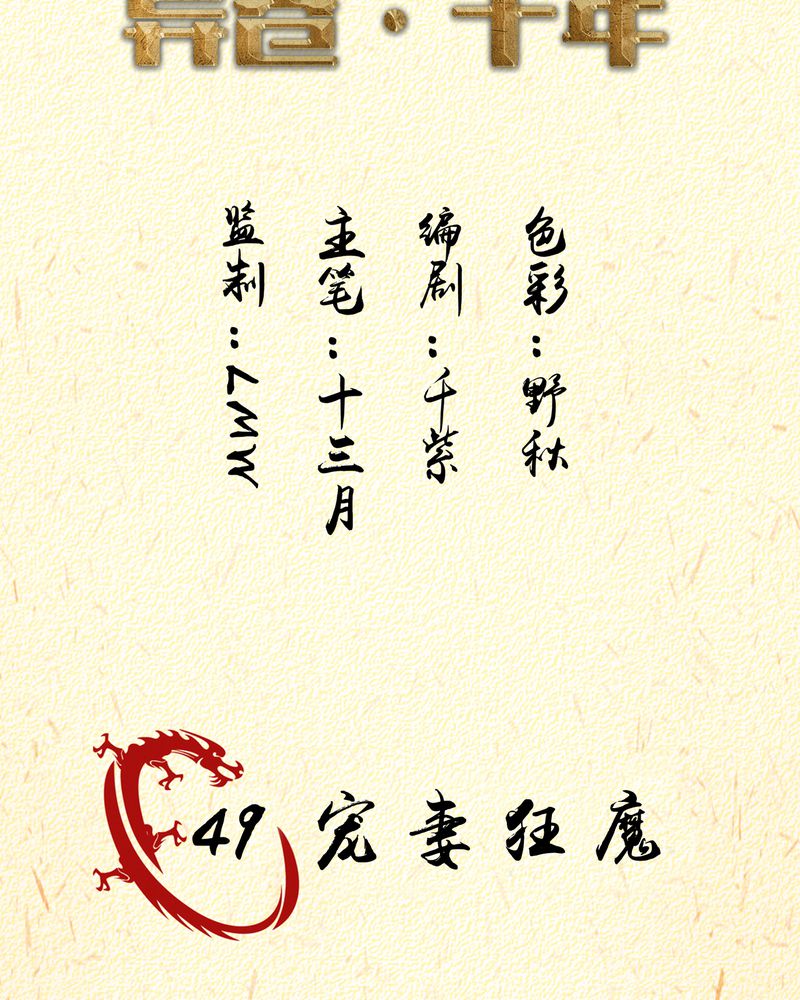 色彩：野秋
编剧：千紫
主笔：十三月
监制：MW7
49 宠妻狂魔